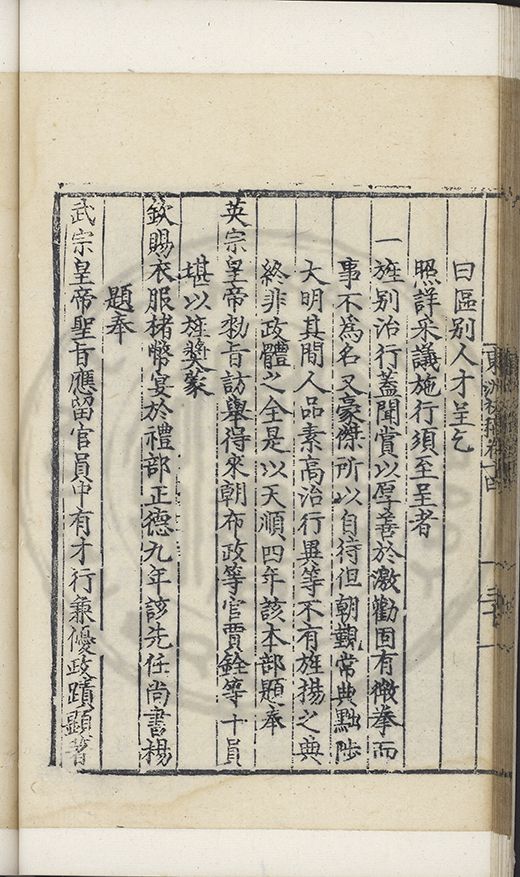 東洲初稿卷十四
曰區別人才呈乞
照詳采議施行須至呈者
一旌别治行蓋聞賞以厚善於激勸固有微拳而
事不為名又豪傑所以自待但朝覲常典黜陟
大明其間人品素高治行異等不有旌揚之典
終非政體之全是以天順四年該本部題奉
英宗皇帝勑旨訪舉得來朝布政等官賈銓等十員
堪以旌奬蒙
欽賜衣服楮幣宴於禮部正德九年該先任尚書楊
題奉
武宗皇帝聖旨應留官員中有才行兼優政蹟顯著